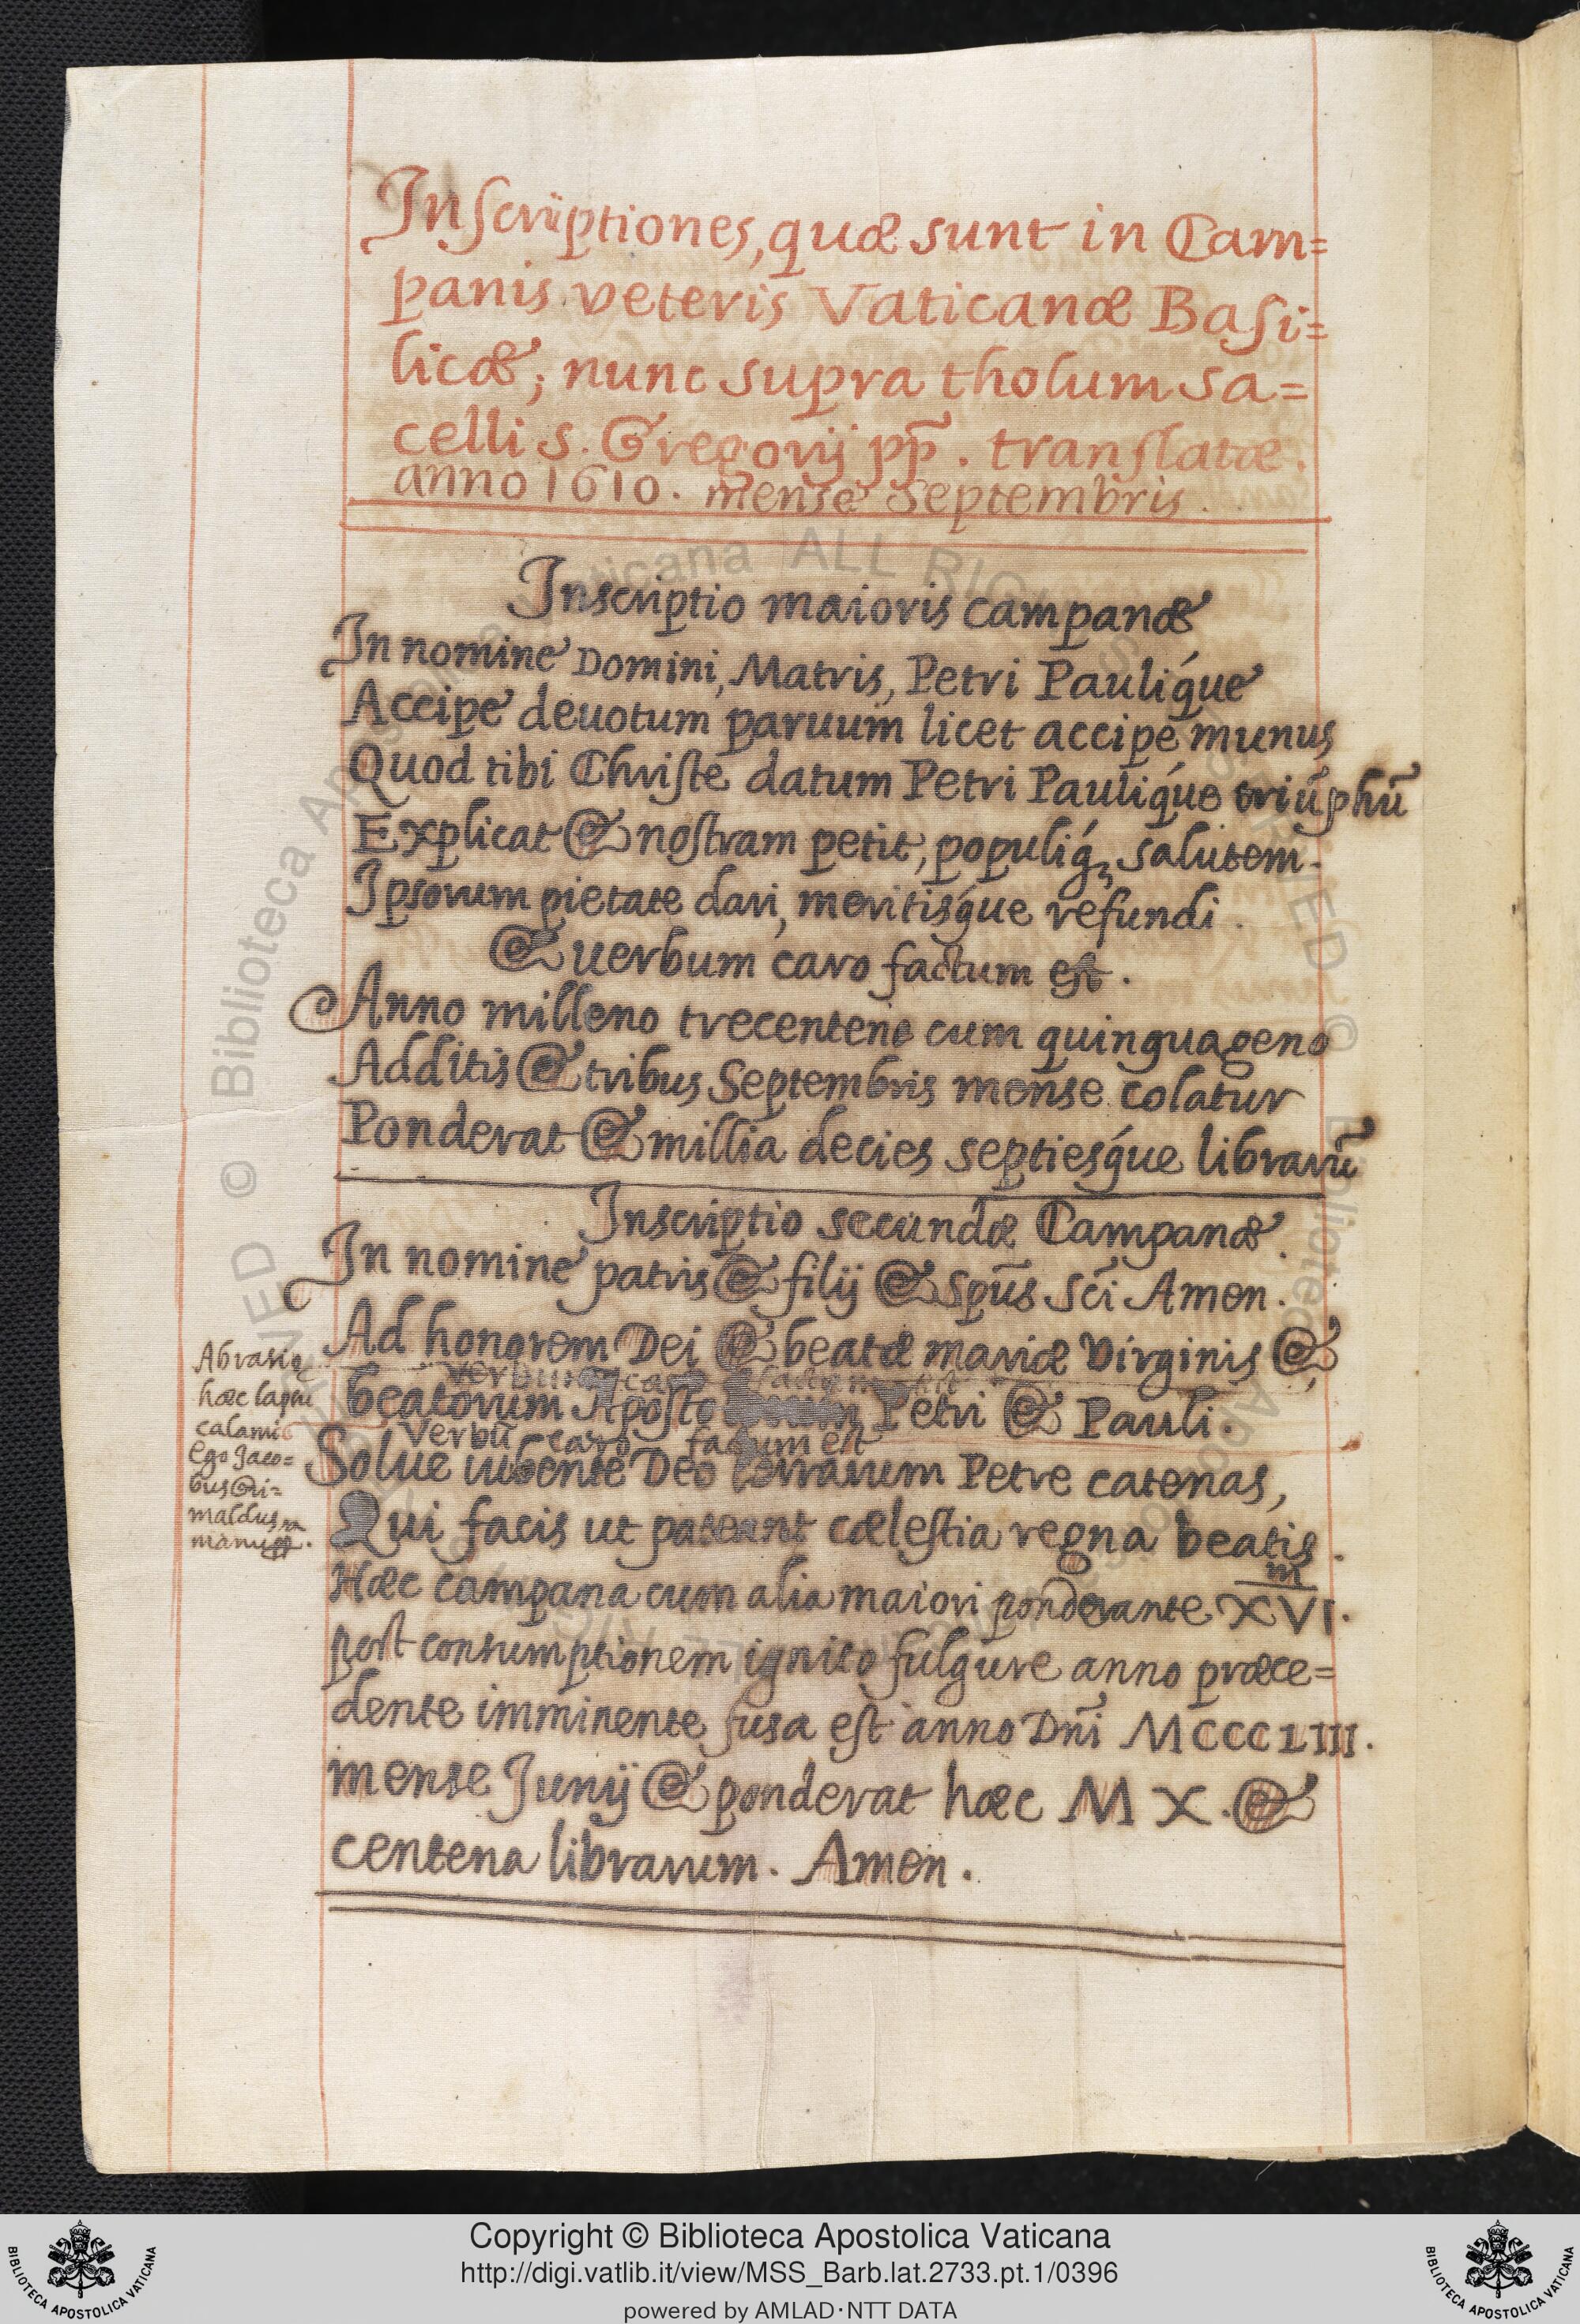 Inscriptiones, quæ sunt in Cam=
panis veteris Vaticanæ Basi=
licæ; nunc supra tholum sa=
celli s. Gregorij pp̃. translatæ.
anno 1610. mense Septembris.
Inscriptio maioris campanæ
In nomine Domini, Matris, Petri Pauliq́ue
Accipe deuotum paruum licet accipe munus
Quod tibi Christe datum Petri Pauliq́ue triũphũ
Explicat & nostram petit, populiq́ꝫ salutem.
Ipsorum pietate dari, meritisq́ue refundi.
& uerbum caro factum est.
Anno milleno trecenteno cum quinquageno
Additis & tribus Septembris mense colatur
Ponderat & millia decies septiesq́ue librarũ
Inscriptio secundæ Campanæ.
In nomine patris & filij & Spũs Sc̃i Amen.
Ad honorem Dei & beatæ mariæ Virginis &
verbum caro factum est
beatorum Apostolorum Petri & Pauli.
Verbũ caro factum est
Solue iubente Deo terrarum Petre catenas,
Qui facis ut pateant cælestia regna beatis.
Hæc campana cum alia maiori ponderante X͞V͞I.
m
post consumptionem ignito fulgure anno præce=
dente imminente fusa est anno Dñi MCCCLIII.
mense Junij & ponderat hæc M X. &
centena librarum. Amen.
Abrasio
hæc lapsu
calami
Ego Jaco=
bus Gri=
maldus
manu pp.
Copyright © Biblioteca Apostolica Vaticana
http://digi.vatlib.it/view/MSS_Barb.lat.2733.pt.1/0396
powered by AMLAD·NTT DATA
BIBLIOTECA APOSTOLICA VATICANA
BIBLIOTECA APOSTOLICA VATICANA